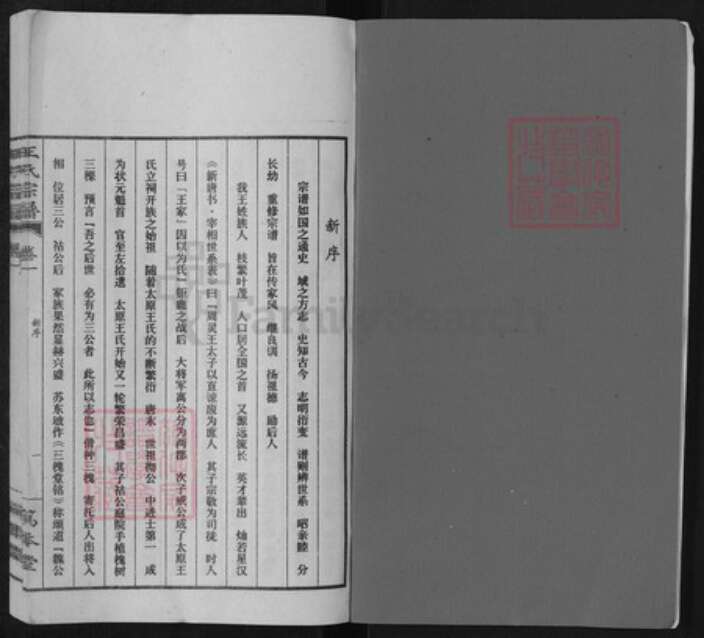 新序
宗谱如国之通史 域之方志 史知古今 志明衍变 谱则辨世系 昭亲睦 分
长幼 重修宗谱 旨在传家风 继良训 扬祖德 励后人
我王姓族人 枝繁叶茂 人口居全国之首 又源远流长 英才辈出 灿若星汉
《新唐书·宰相世系表》曰『周灵王太子以直谏废为庶人 其子宗敬为司徒 时人
号曰『王家』因以为氏』钜鹿之战后 大将军离公分为两郡 次子威公成了太原王
氏立祠开族之始祖 随着太原王氏的不断繁衍 唐末 世祖彻公 中进士第一 成
为状元魁首 官至左拾遗 太原王氏开始又一轮繁荣昌盛 其子祜公庭院手植槐树
三棵 预言『吾之后世 必有为三公者 此所以志也』借种三槐 寄托后人出将入
相 位居三公 祜公后 家族果然显赫兴盛 苏东坡作《三槐堂铭》称颂道『魏公
王氏宗谱
卷一
新序
一
FamilySearch